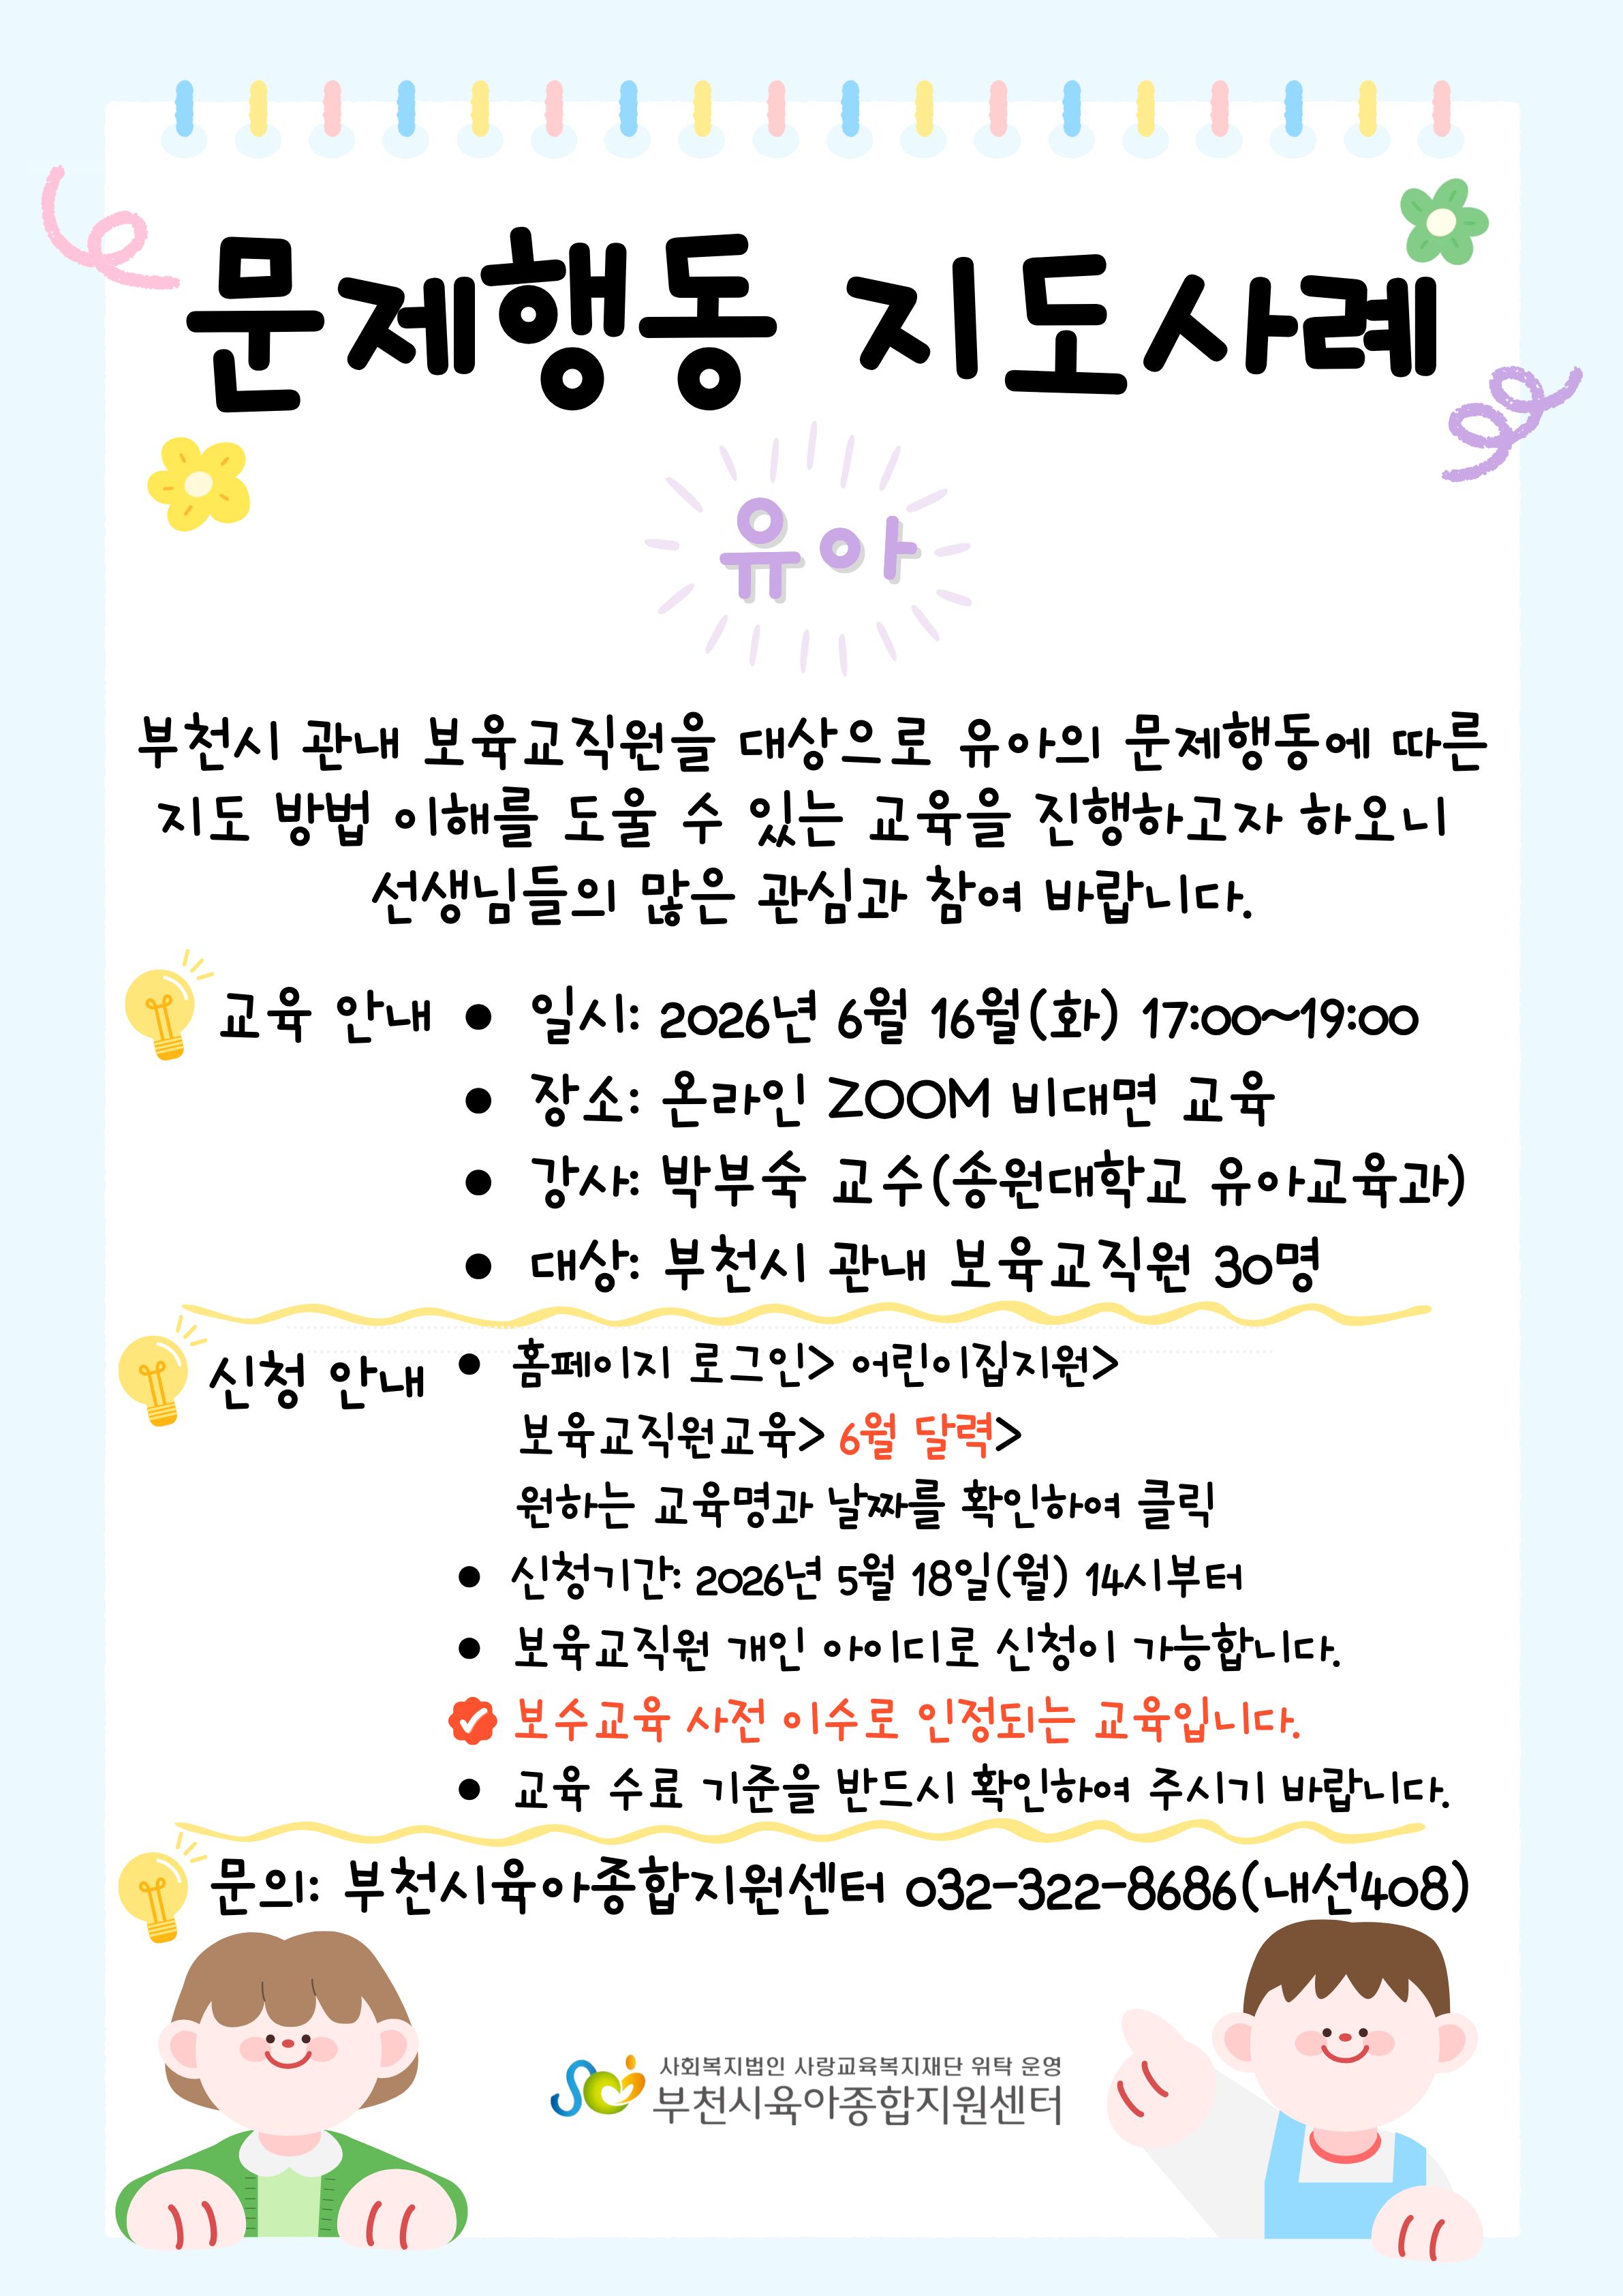 문제행동 지도사례
유아
부천시 관내 보육교직원을 대상으로 유아의 문제행동에 따른
지도 방법 이해를 도울 수 있는 교육을 진행하고자 하오니
선생님들의 많은 관심과 참여 바랍니다.
교육 안내 ● 일시: 2026년 6월 16월(화) 17:00~19:00
● 장소: 온라인 ZOOM 비대면 교육
● 강사: 박부숙 교수(송원대학교 유아교육과)
● 대상: 부천시 관내 보육교직원 30명
신청 안내 ● 홈페이지 로그인> 어린이집지원>
보육교직원교육> 6월 달력>
원하는 교육명과 날짜를 확인하여 클릭
● 신청기간: 2026년 5월 18일(월) 14시부터
● 보육교직원 개인 아이디로 신청이 가능합니다.
보수교육 사전 이수로 인정되는 교육입니다.
● 교육 수료 기준을 반드시 확인하여 주시기 바랍니다.
문의: 부천시육아종합지원센터 032-322-8686(내선408)
사회복지법인 사랑교육복지재단 위탁 운영
부천시육아종합지원센터